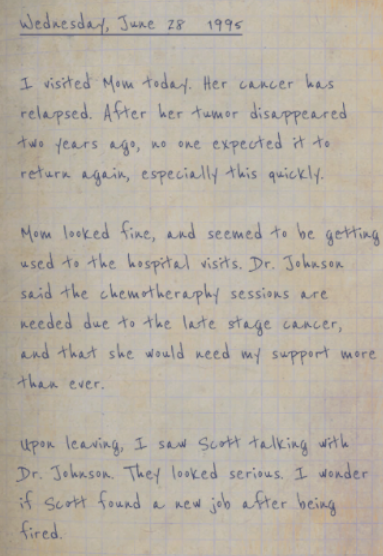 Wednesday, June 28 1995
I visited Mom today. Her cancer has
relapsed. After her tumor disappeared
two years ago, no one expected it to
return again, especially this quickly.
Mom looked fine, and seemed to be getting
used to the hospital visits. Dr. Johnson
said the chemotheraphy sessions are
needed due to the late stage cancer,
and that she would need my support more
than ever.
Upon leaving, I saw Scott talking with
Dr. Johnson. They looked serious. I wonder
if Scott found a new job after being
fired.